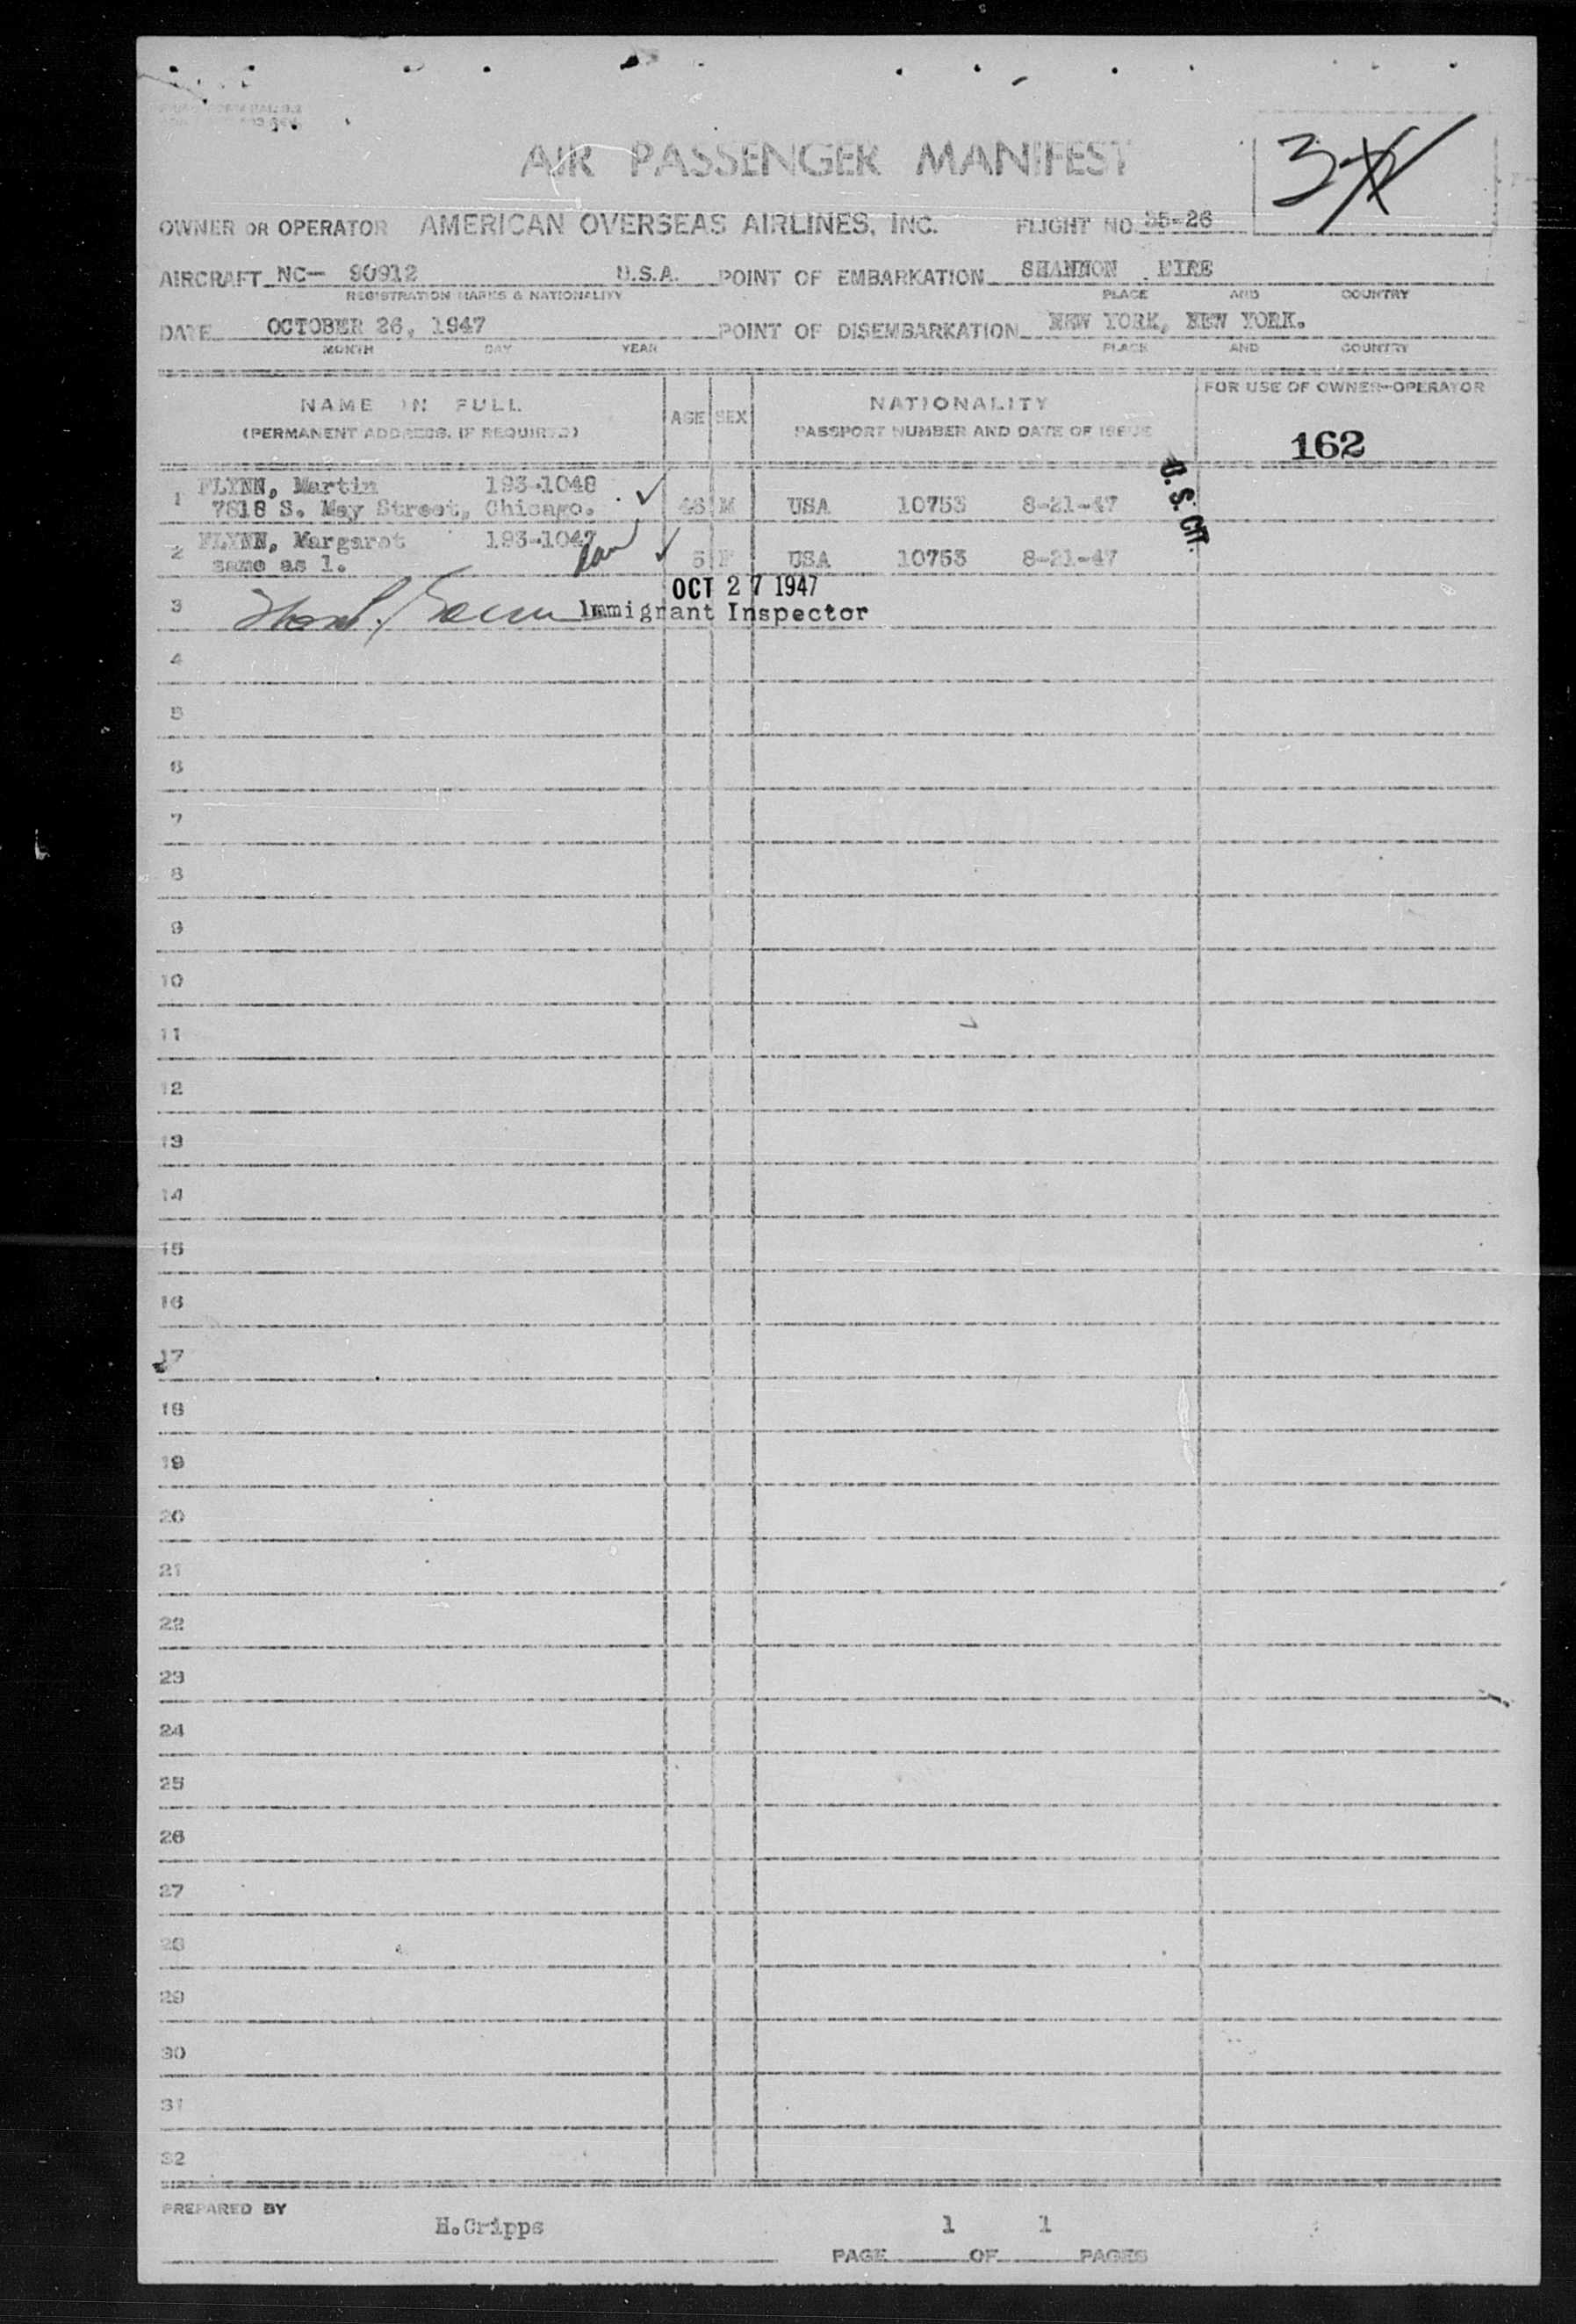 AIR PASSENGER MANIFEST
OWNER OR OPERATOR AMERICAN OVERSEAS AIRLINES, INC. FLIGHT NO. 35-26
AIRCRAFT NC- 90912 U.S.A. POINT OF EMBARKATION SHANNON , EIRE
REGISTRATION MARKS & NATIONALITY PLACE AND COUNTRY
DATE OCTOBER 26, 1947 POINT OF DISEMBARKATION NEW YORK, NEW YORK.
MONTH DAY YEAR PLACE AND COUNTRY
NAME IN FULL
(PERMANENT ADDRESS, IF REQUIRED)
AGE SEX
NATIONALITY
PASSPORT NUMBER AND DATE OF ISSUE
FOR USE OF OWNER-OPERATOR
162
U. S. CIT.
1 FLYNN, Martin 193-1048 46 M USA 10753 8-21-47
7818 S. May Street, Chicago.
2 FLYNN, Margaret 193-1047 5 F USA 10753 8-21-47
same as 1.
OCT 27 1947
3 Immigrant Inspector
4
5
6
7
8
9
10
11
12
13
14
15
16
17
18
19
20
21
22
23
24
25
26
27
28
29
30
31
32
PREPARED BY
H.Cripps 1 1
PAGE OF PAGES